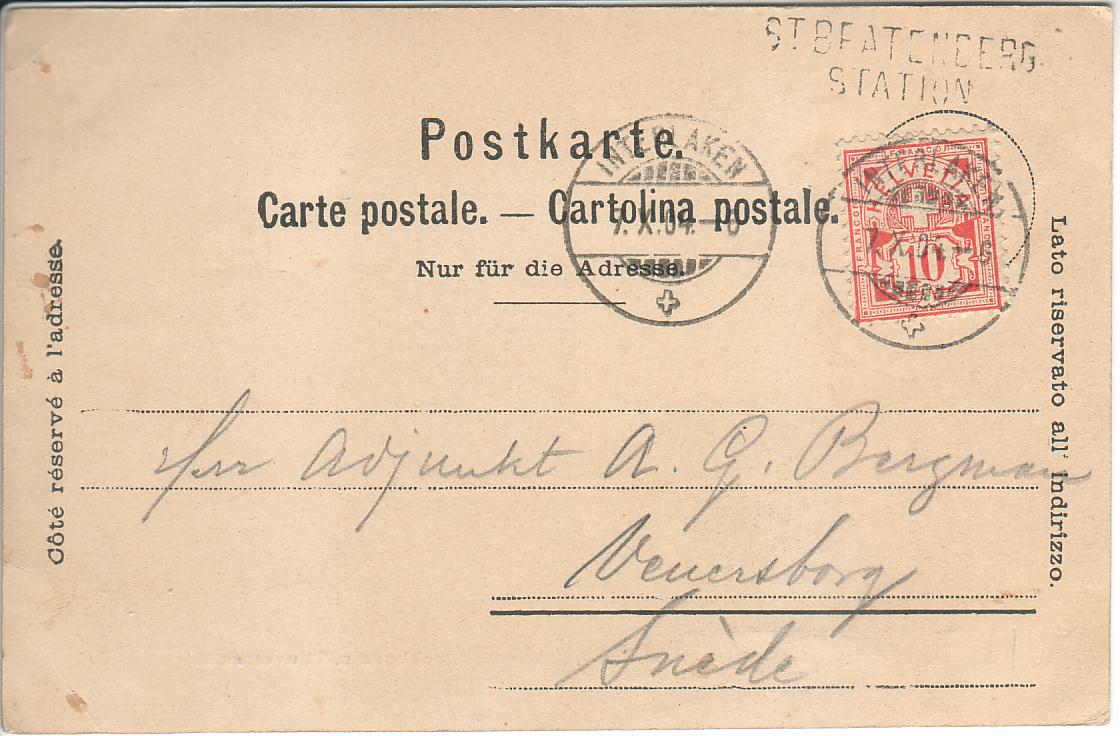 ST BEATENBERG
STATION
Postkarte.
Carte postale. — Cartolina postale.
Nur für die Adresse.
INTERLAKEN
7.X.04.–6
INTERLAKEN
7.X.04.–6
FRANCO
HELVETIA
10
Côté réservé à l'adresse.
Lato riservato all' indirizzo.
Herr Adjunkt A. G. Bergman
Venersborg
Suède